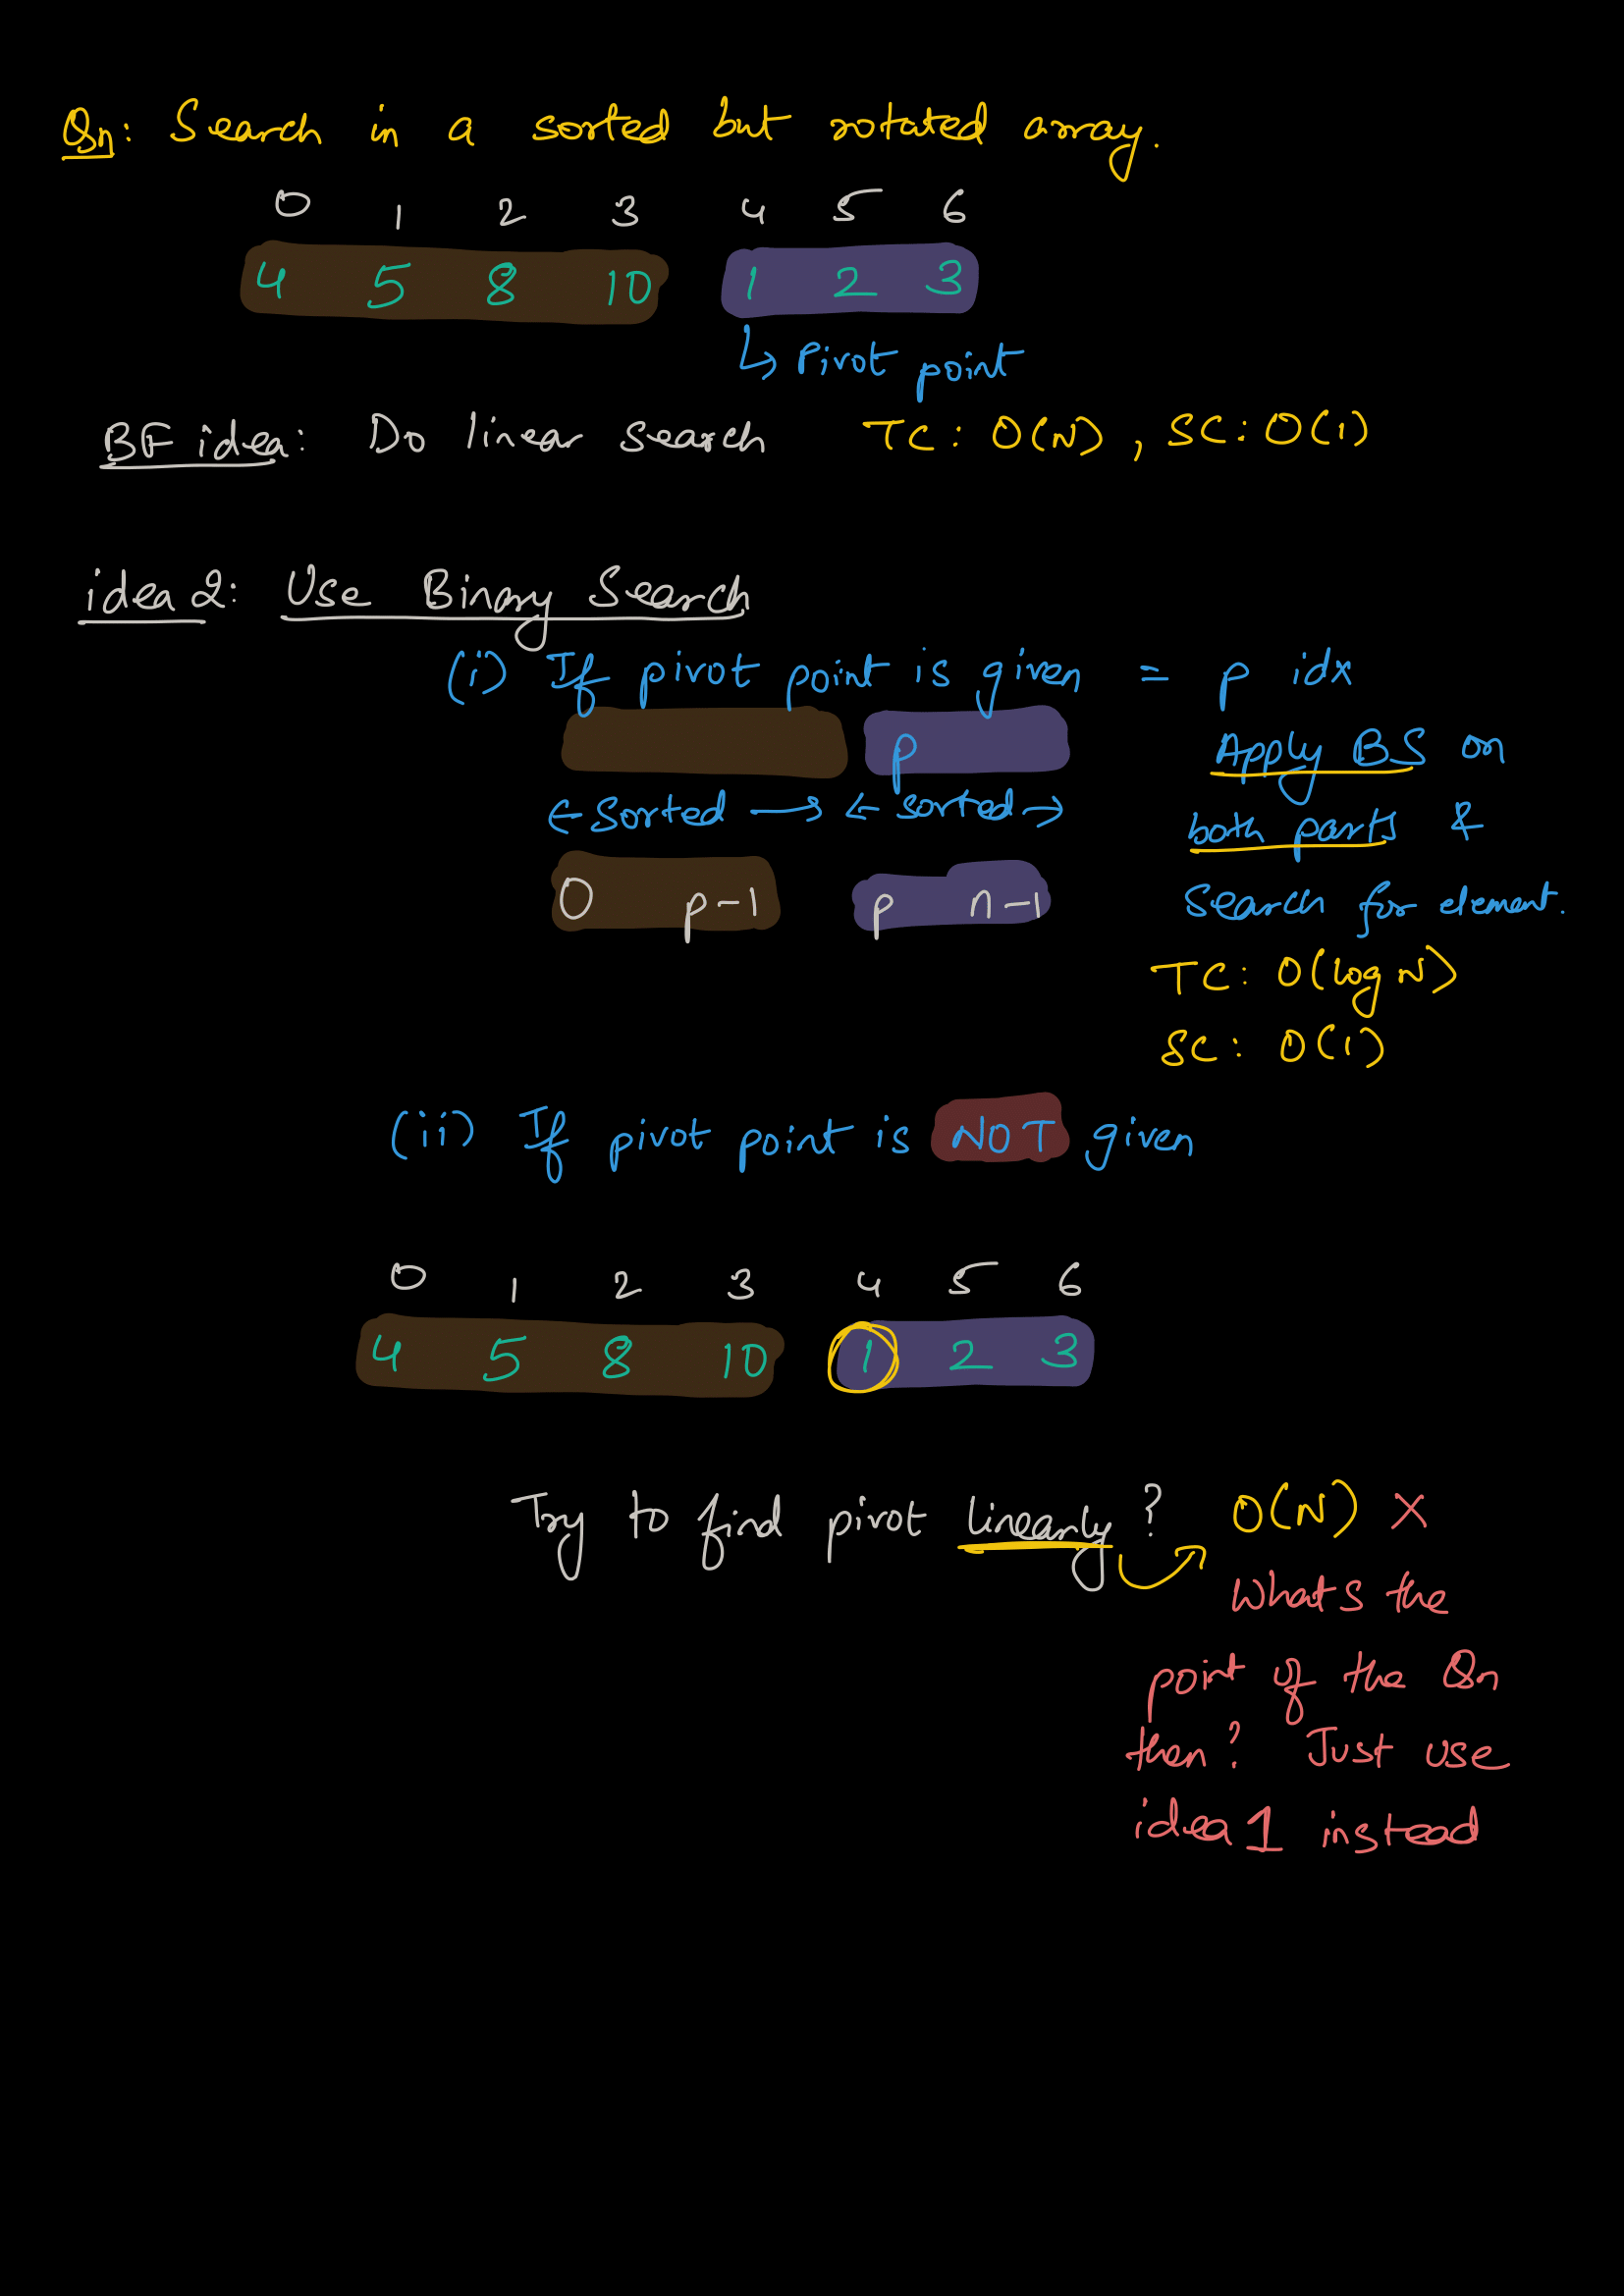 Qn: Search in a sorted but rotated array.
0 1 2 3 4 5 6
4 5 8 10 1 2 3
↳ Pivot point
BF idea: Do linear search TC: O(N), SC: O(1)
idea 2: Use Binary Search
(i) If pivot point is given = p idx
p
Apply BS on
← Sorted → ← sorted →
both parts &
0 p-1 p n-1
Search for element.
TC: O(log N)
SC: O(1)
(ii) If pivot point is NOT given
0 1 2 3 4 5 6
4 5 8 10 1 2 3
Try to find pivot linearly? O(N) X
What's the
point of the Qn
then? Just use
idea 1 instead